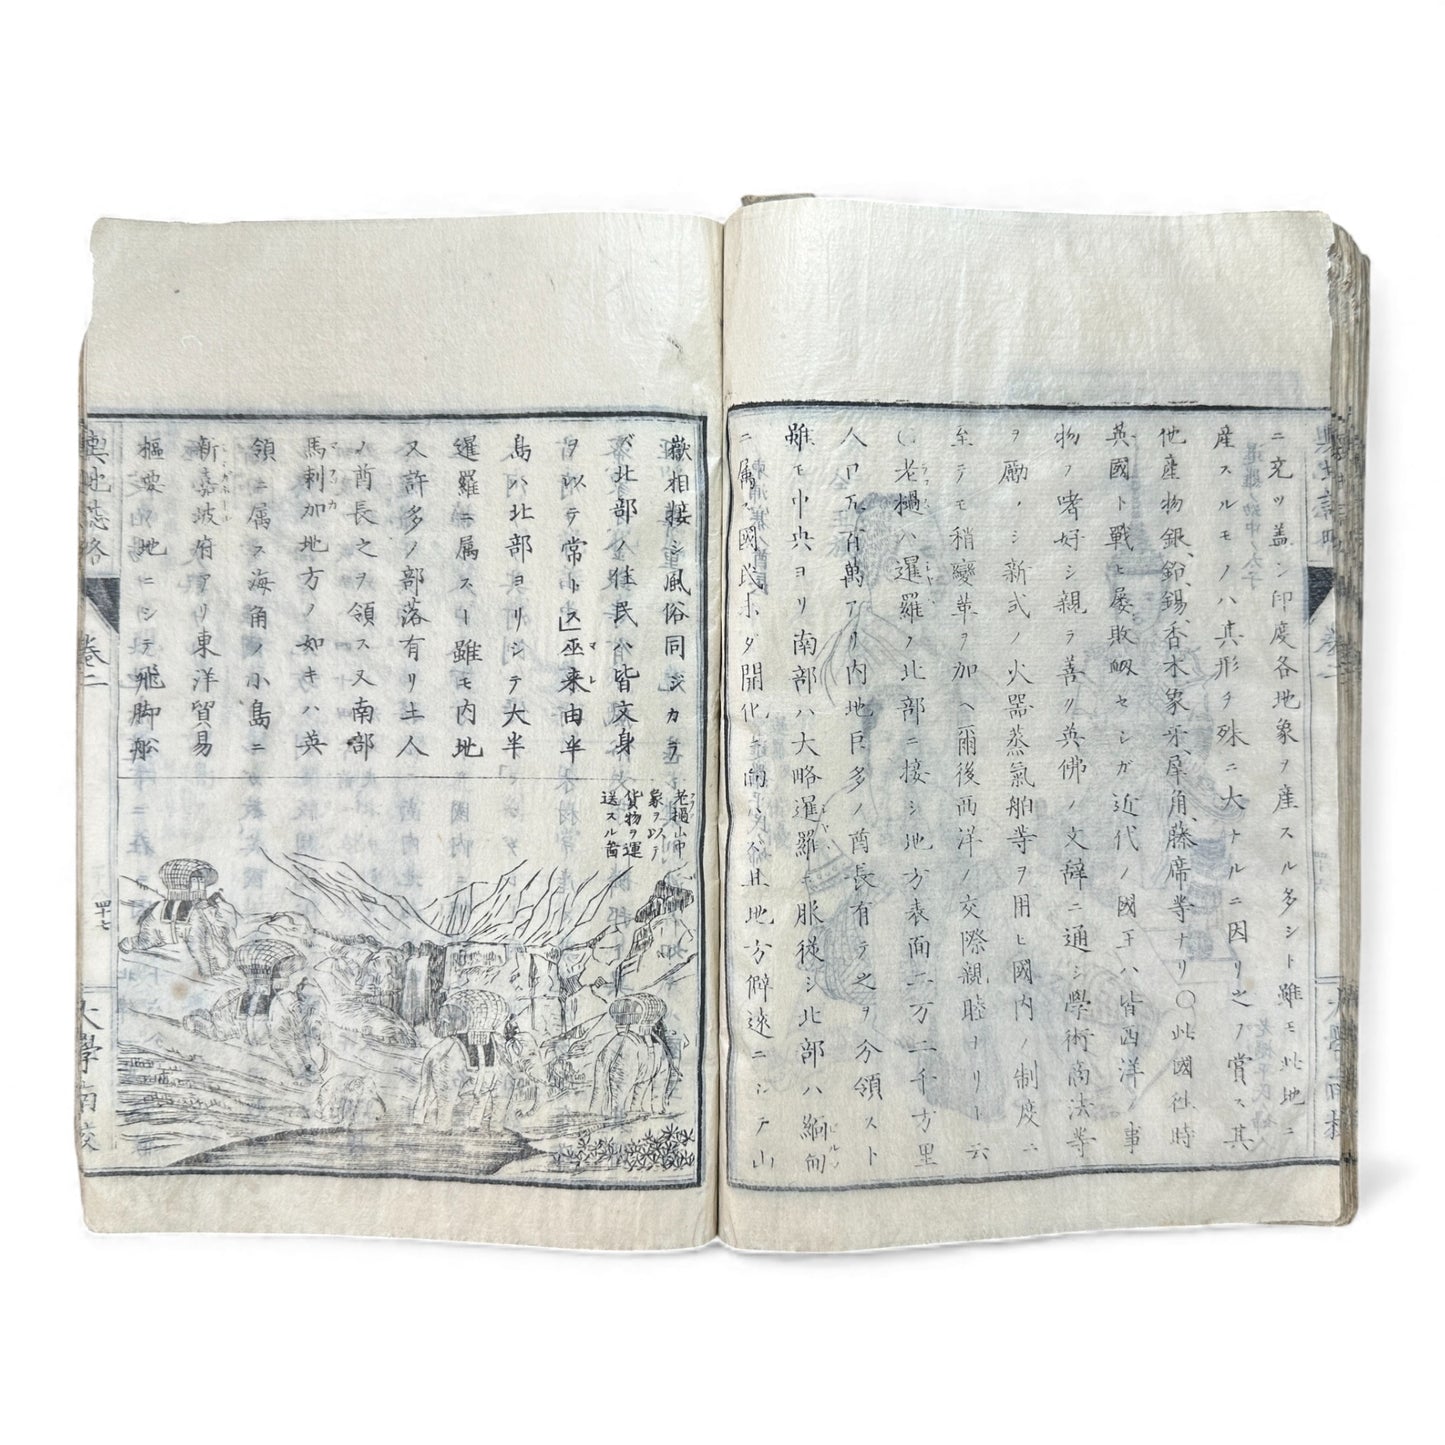 ニ充ツ盖シ印度各地象ヲ産スル多シト雖モ此地ニ
産スルモノハ其形チ殊ニ大ナルニ因リ之ノ賞ス其
他産物銀、鉛、錫、香木、象牙、犀角、藤席等ナリ〇此國往時
英國ト戰ヒ屡敗衂セシガ近代ノ國王ハ皆西洋ノ事
物ノ嗜好シ親ラ善リ英佛ノ文辭ニ通シ學術商法等
ヲ勵ノシ新式ノ火器蒸氣舶等ヲ用ヒ國内ノ制度ニ
至テモ稍變革ヲ加ヘ爾後西洋ノ交際親睦ナリト云
〇老檛ハ暹羅ノ北部ニ接シ地方表面二万二千方里
人口五百萬アリ内地巨多ノ酋長有テ之ヲ分領スト
雖モ中央ヨリ南部ハ大略暹羅ニ服從シ北部ハ緬甸
ニ属ス國民未ダ開化 且地方僻遠ニシテ山
嶽相接シ風俗同ジカラ
バ北部ノ住民ハ皆文身
ヲ以テ常トス」巫来由半
島ハ北部ヨリシテ大半
暹羅ニ属スト雖モ内地
又許多ノ部落有リ土人
ノ酋長之ヲ領ス又南部
馬剌加地方ノ如キハ英
領ニ属ス海角ノ小島ニ
新嘉坡府アリ東洋貿易
樞要地ニシテ飛脚舩
老檛山中
象ヲ以テ
貨物ヲ運
送スル啚
輿地誌略
巻二
四十七
大學南校